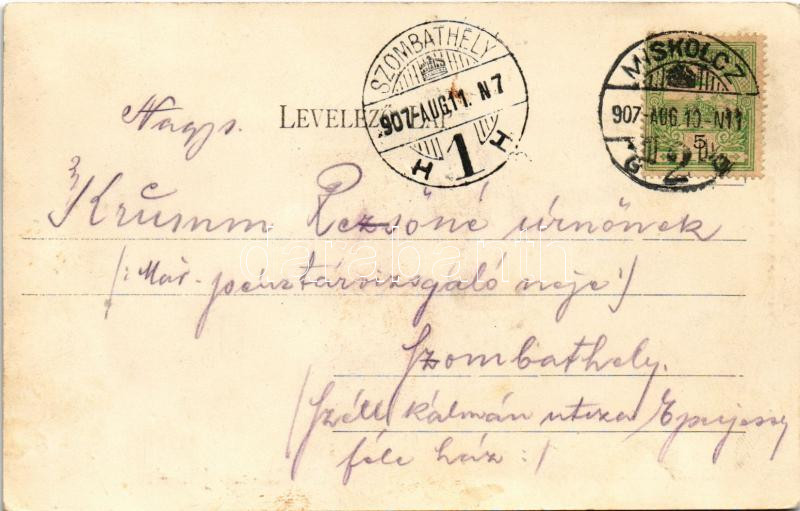 SZOMBATHELY
907-AUG.11. N7
H 1 H
MISKOLCZ
907-AUG 10-N11
2
5
Nagys.
LEVELEZŐ-LAP
Krumm Rezsőné úrnőnek
(: Máv. pénztárvizsgáló neje :)
Szombathely.
(Széll Kálmán utcza Eperjessy
féle ház :)
darabanth